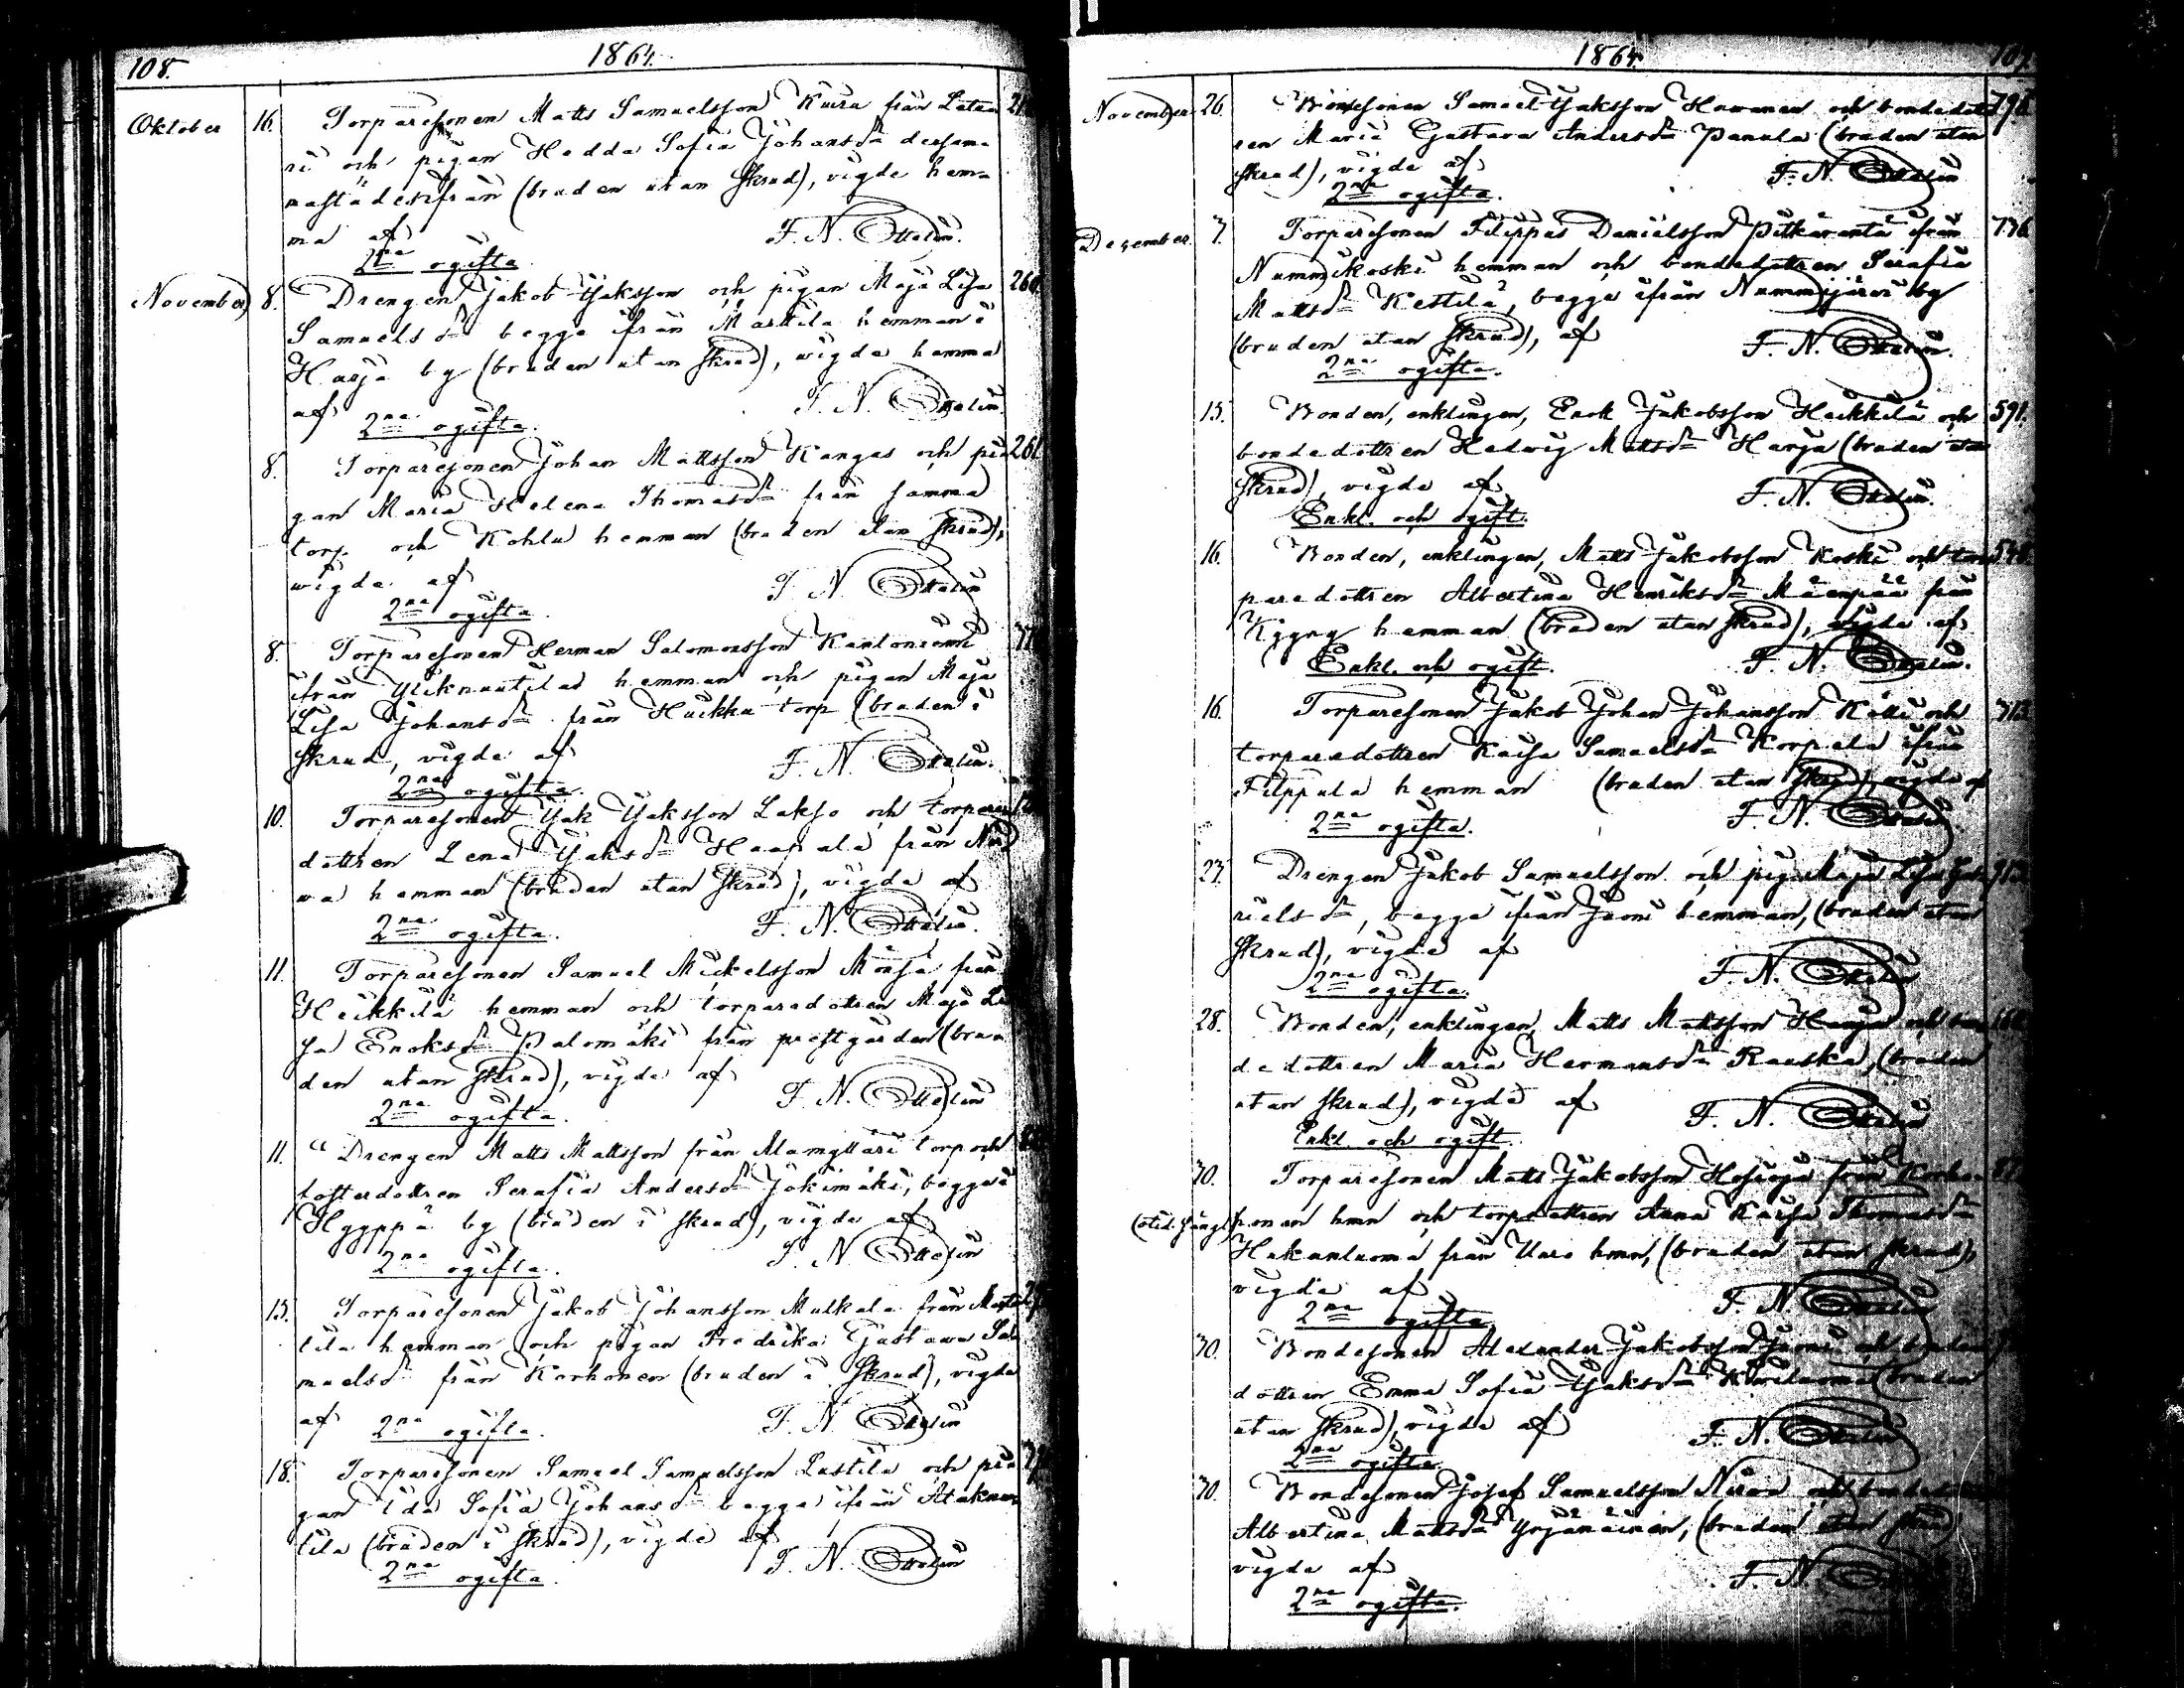 108.
1864.
Oktober 16. Torparesonen Matts Samuelsson Kuira från
ri och pigan Hedda Sofia Johansdr dersam-
mastädesifrån (bruden utan skrud), vigde hem-
ma af F. N. Ottelin.
2ne ogifta
November 8. Drengen Jakob Jakson och pigan Maja Lisa 260.
Samuelsdr begge ifrån Marttila hemman i
Harja by (bruden utan skrud), wigda hemma
af F. N. Ottelin.
2ne ogifta.
8. Torparesonen Johan Mattsson Kangas och pi- 261
gan Maria Helena Thomasdr från samma
torp och Kohlu hemman (bruden utan skrud),
wigda af F. N. Ottelin
2ne ogifta.
8. Torparesonen Herman Salomonsson
ifrån Yliknuutilas hemman och pigan Maja
Lisa Johansdr från Huikku torp (bruden i
skrud, vigde af F. N. Ottelin.
2ne ogifta.
10. Torparesonen Jak Jaksson Lakso och torpare
dottren Lena Jaksdr Haapala från
wa hemman (bruden utan skrud), vigda af
2ne ogifta. F. N. Ottelin.
11. Torparesonen Samuel Mickelsson från
Heikkilä hemman och torparedottren Maja Li
sa Enoksdr Palomäki från prestgården (bru-
den utan skrud), vigde af F. N. Ottelin
2ne ogifta.
11. Drengen Matts Mattsson från Alamylläri torp och
dottren Serafia Andersdr Jokimäki, begge i
Hyyppä by (bruden i skrud), vigde af
2ne ogifta. F. N. Ottelin
15. Torparesonen Jakob Johansson Mulkala från Mart
tila hemman och pigan Fredrika Gustava Sa
muelsdr från Korhonen (bruden i skrud), vigda
af 2ne ogifta. F. N. Ottelin
18. Torparesonen Samuel Samuelsson Lustila och pi
gan Ida Sofia Johansdr begge ifrån Alaknuu
tila (bruden i skrud), vigde af F. N. Ottelin
2ne ogifta.
1864.
109.
November 26. Bondesonen Samuel Jaksson Havunen och bondedott 796.
ren Maria Gustava Andersdr Panula (bruden utan
skrud), vigde af F. N. Ottelin
2ne ogifta.
December. 7. Torparesonen Filippus Danielsson Pitkäranta ifrån 736
Nummikoski hemman och bondedottren Serafia
Mattsdr Kestilä, begge ifrån Nummijärvi by
(bruden utan skrud), af F. N. Ottelin.
2ne ogifta.
15. Bonden, enklingen, Enok Jakobsson Heikkilä och 591.
bondedottren Hedvig Mattsdr Harja (bruden utan
skrud), vigde af F. N. Ottelin.
Enkl. och ogift.
16. Bonden, enklingen, Matts Jakobsson Koski och tor 548.
paredottren Albertina Henriksdr Mäenpää från
Kyyny hemman (bruden utan skrud), vigde af
Enkl. och ogift. F. N. Ottelin.
16. Torparesonen Jakob Johan Johansson och 713.
torparedottren Kaisa Samuelsdr Korpela ifrån
Filppula hemman (bruden utan skrud), vigde af
2ne ogifta. F. N. Ottelin
23. Drengen Jakob Samuelsson och pigan Maja Lisa Gab
rielsdr, begge ifrån Juoni hemman, (bruden utan
skrud), vigde af F. N. Ottelin
2ne ogifta.
28. Bonden, enklingen, Matts Mattsson Harja och bon
dedottren Maria Hermansdr Rauska, (bruden
utan skrud), vigde af F. N. Ottelin
Enkl. och ogift.
30. Torparesonen Matts Jakobsson från Korho-
nonen hmn och torpdottren Anna Kaisa Thomasdr
Hakunluoma från Uuro hmn, (bruden utan skrud),
vigde af F. N. Ottelin
2ne ogifta.
30. Bondesonen Alexander Jakobsson Juoni och bonde
dottren Emma Sofia Jaksdr (bruden
utan skrud), vigda af F. N. Ottelin
2ne ogifta.
30. Bondesonen Josef Samuelsson och bondedottren
Albertina Mattsdr Yrjänäinen, (bruden utan skrud)
vigde af F. N. Ottelin
2ne ogifta.